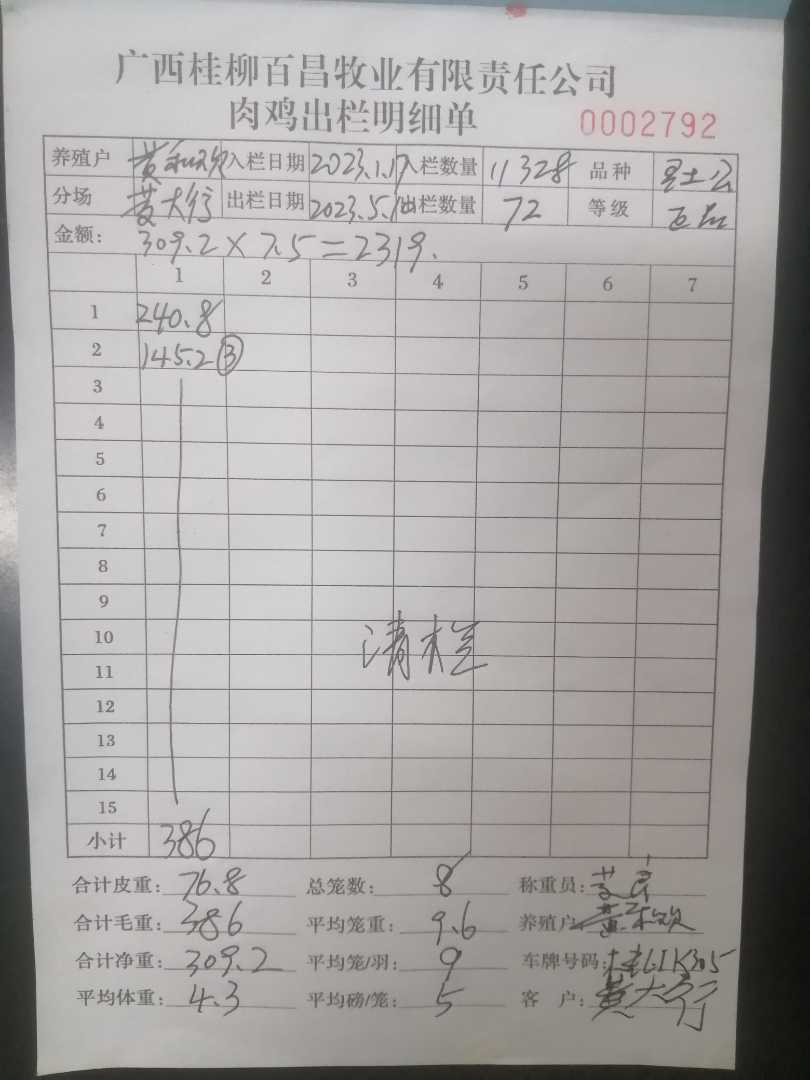 广西桂柳百昌牧业有限责任公司
肉鸡出栏明细单 0002792
养殖户 黄 入栏日期 2023.1.17 入栏数量 11328 品种 土公
分场 黄大行 出栏日期 2023.5.1 出栏数量 72 等级
金额: 309.2×7.5=2319.
1 2 3 4 5 6 7
1 240.8
2 145.2③
3
4
5
6
7
8
9
10
清栏
11
12
13
14
15
小计 386
合计皮重: 76.8 总笼数: 8 称重员: 黄
合计毛重: 386 平均笼重: 9.6 养殖户 黄
合计净重: 309.2 平均笼/羽: 9 车牌号码: 桂LIK305
平均体重: 4.3 平均磅/笼: 5 客 户: 黄大行